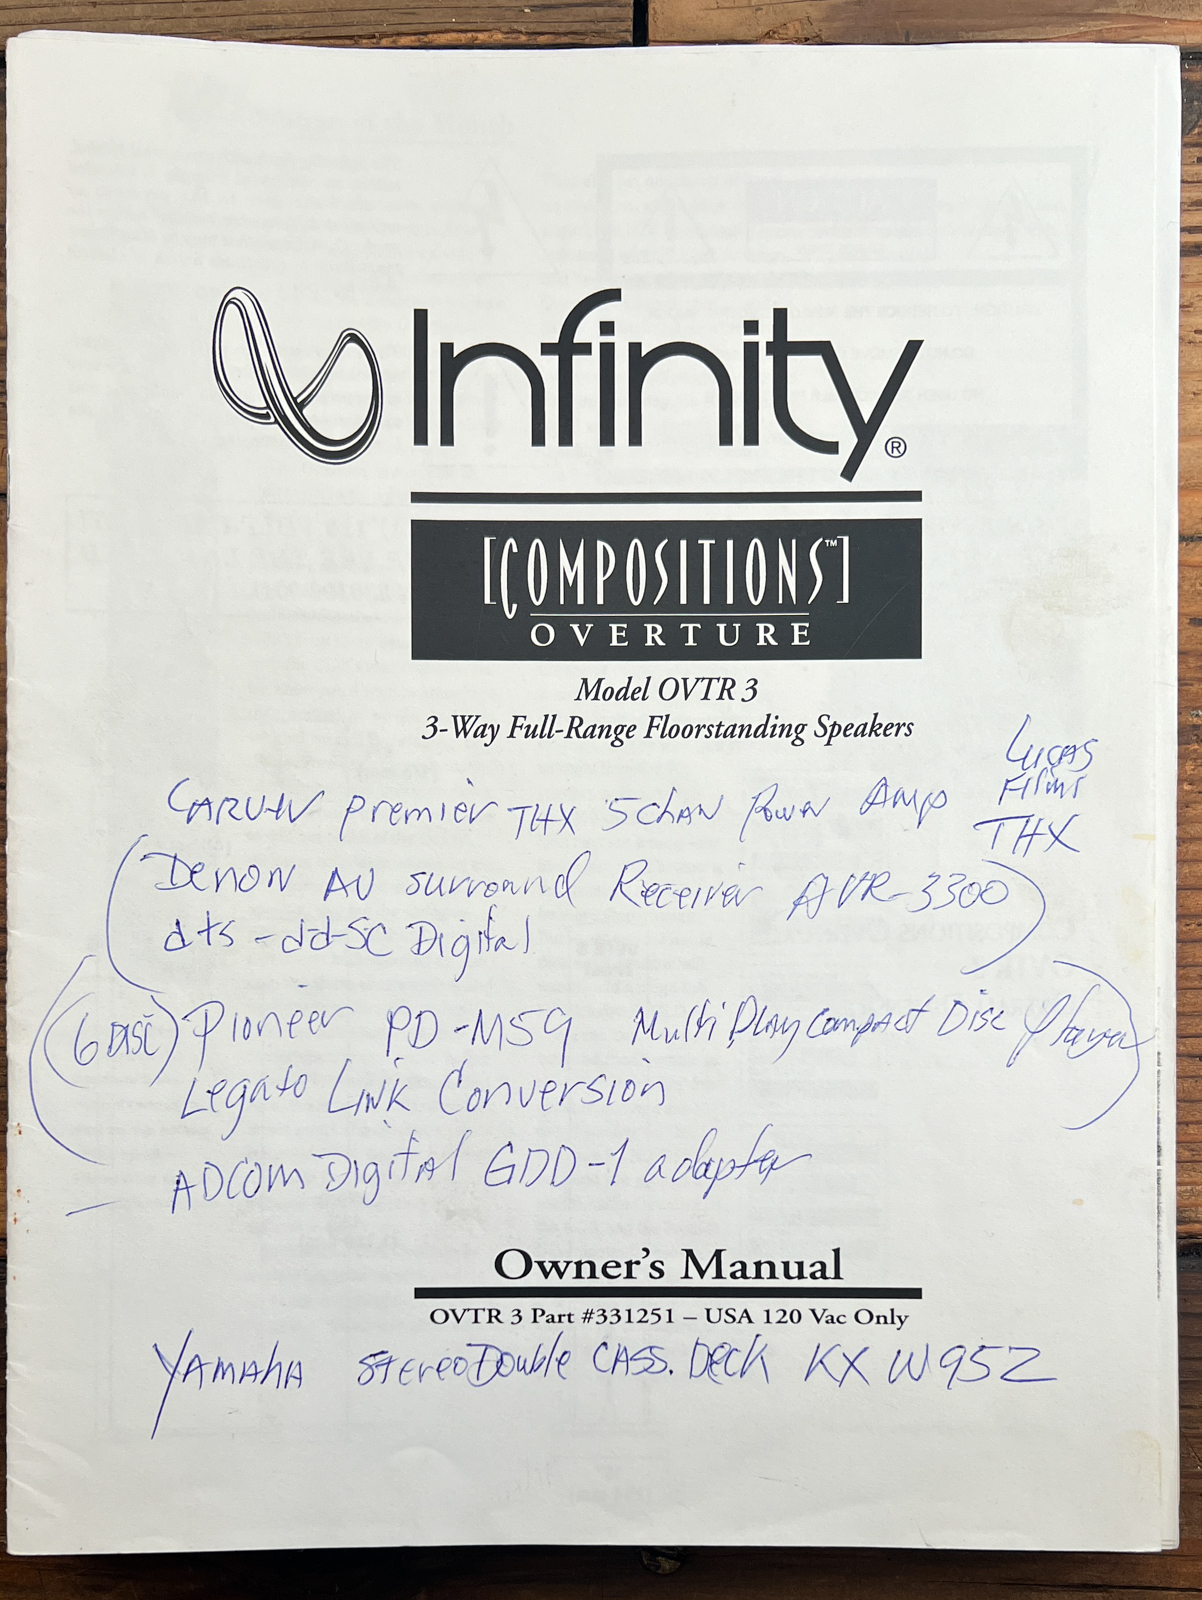 Infinity®
[COMPOSITIONS™]
OVERTURE
Model OVTR 3
3-Way Full-Range Floorstanding Speakers
Lucas
Films
THX
CARVIN premier THX 5 chan Power Amp
(Denon AV surround Receiver AVR-3300
dts - dd-SC Digital)
(6 DISC) Pioneer PD-M59 Multi Play Compact Disc Player
Legato Link Conversion
— ADCOM Digital GDD-1 adapter
Owner's Manual
OVTR 3 Part #331251 – USA 120 Vac Only
YAMAHA Stereo Double CASS. Deck KX W952